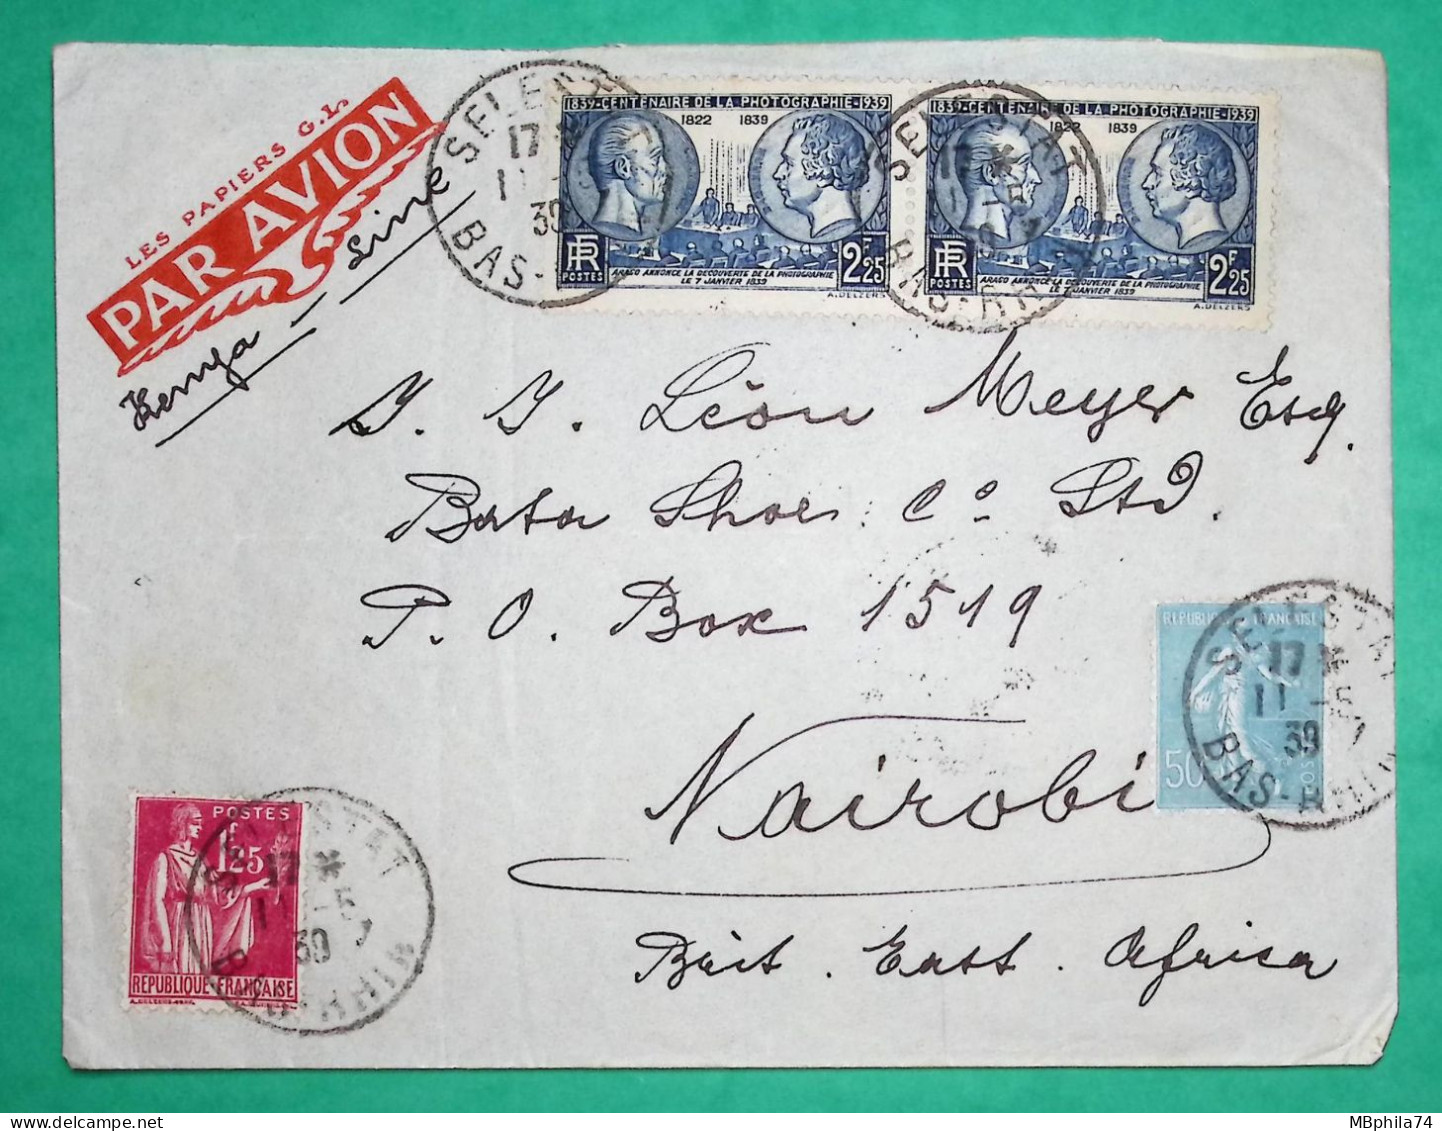 LES PAPIERS G.L.
PAR AVION
Kenya - Line
SELESTAT
17 *
11 -5
39
BAS-RHIN
1839-CENTENAIRE DE LA PHOTOGRAPHIE-1939
1822 1839
RF
POSTES
ARAGO ANNONCE LA DECOUVERTE DE LA PHOTOGRAPHIE
LE 7 JANVIER 1839
2F25
A. DELZERS
SELESTAT
17 *
-5
39
BAS-RHIN
1839-CENTENAIRE DE LA PHOTOGRAPHIE-1939
1822 1839
RF
POSTES
ARAGO ANNONCE LA DECOUVERTE DE LA PHOTOGRAPHIE
LE 7 JANVIER 1839
2F25
A. DELZERS
Léon Meyer Esq.
Bata Shoe Co Ltd.
P. O. Box 1519
Nairobi
Brit. East. Africa
REPUBLIQUE FRANÇAISE
50
SELESTAT
17 *
11 -5
39
BAS-RHIN
POSTES
1F25
REPUBLIQUE-FRANÇAISE
SELESTAT
17 *
11 -5
39
BAS-RHIN
MBphila74